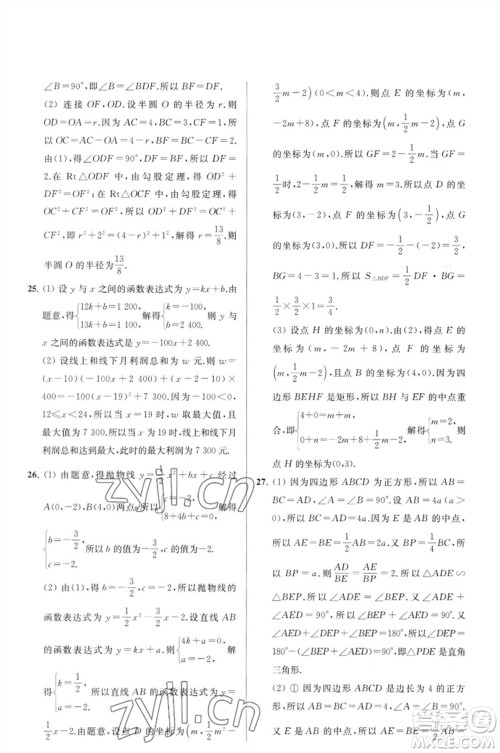 ∠B=90°,即∠B=∠BDF.所以∠BDF=90°.
(2) 连接 OF,OD.设半圆 O 的半径为 r.则
OD=OA=r.因为 AC=4,CF=BC-BF=2.
所以 OC=AC-OA=4-r,BF=BC-CF=2.
由(1),得∠ODF=∠BDF=90°,∠C=90°.
在 Rt△ODF 中,由勾股定理,得 OD²+DF²=OF².在 Rt△OCF 中,由勾股定理,得 OC²+CF²=OF².所以 OD²+DF²=OC²+
CF²,即 r²+2²=(4-r)²+2².解得 r=13/8.则
半圆 O 的半径为13/8.
25. (1) 设 y 与 x 之间的函数表达式为 y=kx+b,由
题意,得{12k+b=1 200, 13k+b=1 100. 解得{k=-100, b=2 400. 所以 y 与
x 之间的函数表达式为 y=-100x+2 400.
(2) 设线上和线下月利润总和为 w 元,则 w=
12≤x<24.所以当 x=19 时,w 取最大值,且
最大值为 7 300.所以当 x 为 19 时,线上和线下
月利润总和达到最大,最大利润为 7 300 元.
26. (1) 由题意,得抛物线 y=1/2x²+bx+c 经过
A(0,-2),B(4,0)两点,所以{c=-2, 8+4b+c=0. 解得
{b=-3/2, c=-2. 所以 b 的值为-3/2,c 的值为-2.
(2) 由(1),得 b=-3/2,c=-2,所以抛物线的
函数表达式为 y=1/2x²-3/2x-2.设直线 AB
的函数表达式为 y=kx+a,则{4k+a=0, a=-2. 解得
{k=1/2, a=-2. 所以直线 AB 的函数表达式为 y=
1/2x-2.因为点 D 的坐标为(m,1/2m²-
3/2m-2)(0<m<4),所以点 E 的坐标为(m,
-2m+8),点 F 的坐标为(m,1/2m-2),点 G
的坐标为(m,0).所以 GF=2-1/2m.当 GF=
1/2时,2-1/2m=1/2.解得 m=3.所以点 D 的坐标
为(3,-2),点 F 的坐标为(3,-1/2),点 G 的
坐标为(3,0).所以 DF=-1/2-(-2)=3/2,
BG=4-3=1.所以 S△BDF=1/2DF·BG=
1/2×3/2×1=3/4.
(3) 设点 H 的坐标为(0,n).由(2),得点 E 的
坐标为(m,-2m+8),点 F 的坐标为
(m,1/2m-2),且点 B 的坐标为(4,0).因为四
边形 BEHF 是矩形,所以 BH 与 EF 的中点重
合,即
所以点 H 的坐标为(0,3).
27. (1) 因为四边形 ABCD 为正方形,所以∠A=
∠B=90°,BC=AD=AB.设 AD=4a(a>
0),所以 BC=AD=AB=4a.又 E 是 AB 的中
点,所以 AE=BE=1/2AB=2a.又 BP=1/4BC,所
以 BP=a.所以AD/BE=AE/BP=2.所以△ADE∽
△BEP.所以∠AED=∠BPE.因为∠B=90°,
所以∠BEP+∠BPE=180°-∠B=90°.所以
∠AED+∠BEP=90°.所以∠DEP=180°-
(∠AED+∠BEP)=90°.所以△DEP 是直角
三角形.
(2) ① 因为四边形 ABCD 是正方形,且边长为
4,所以 BC=AD=AB=4,∠A=∠B=∠C=